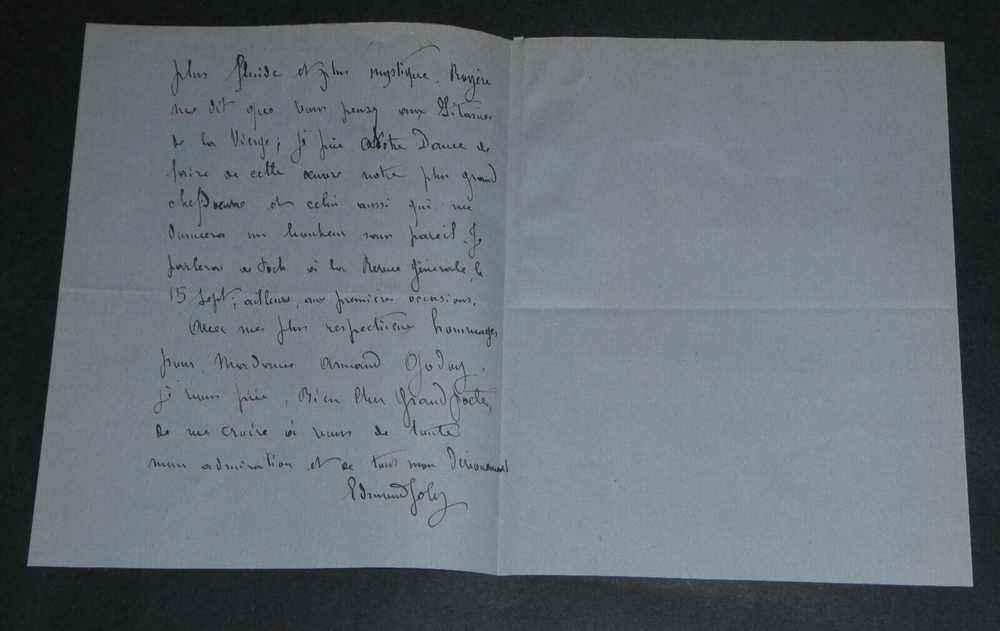 plus fluide et plus mystique. Royère
me dit que vous pensez aux Litanies
de la Vierge; je prie Notre Dame de
faire de cette œuvre votre plus grand
chef d'œuvre et celui aussi qui me
donnera un bonheur sans pareil. Je
parlerai à la Revue Générale, le
15 Sept; ailleurs, aux premières occasions.
Avec mes plus respectueux hommages
pour Madame Armand Godoy,
je vous prie, Bien Cher Grand Poète,
de me croire à vous de toute
mon admiration et de tout mon dévouement
Edmond Joly